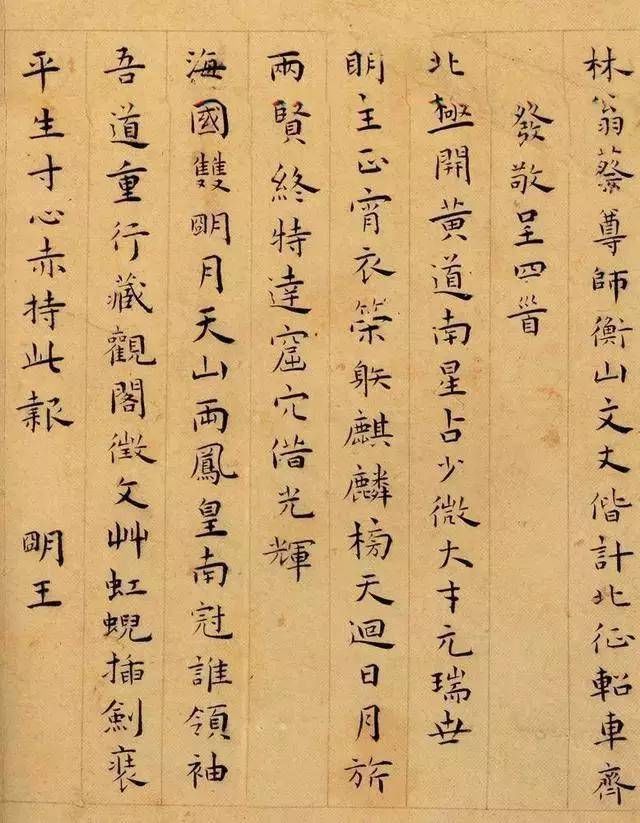 林翁蔡尊師衡山文丈偕計北征軺車齊
發敬呈四首
北極開黃道南星占少微大才元瑞世
明主正宵衣榮躱麒麟榜天迴日月旂
兩賢終特達窟穴借光輝
海國雙明月天山兩鳳皇南冠誰領袖
吾道重行藏觀閣徵文艸虹蜺插劍裝
平生寸心赤持此報 明王